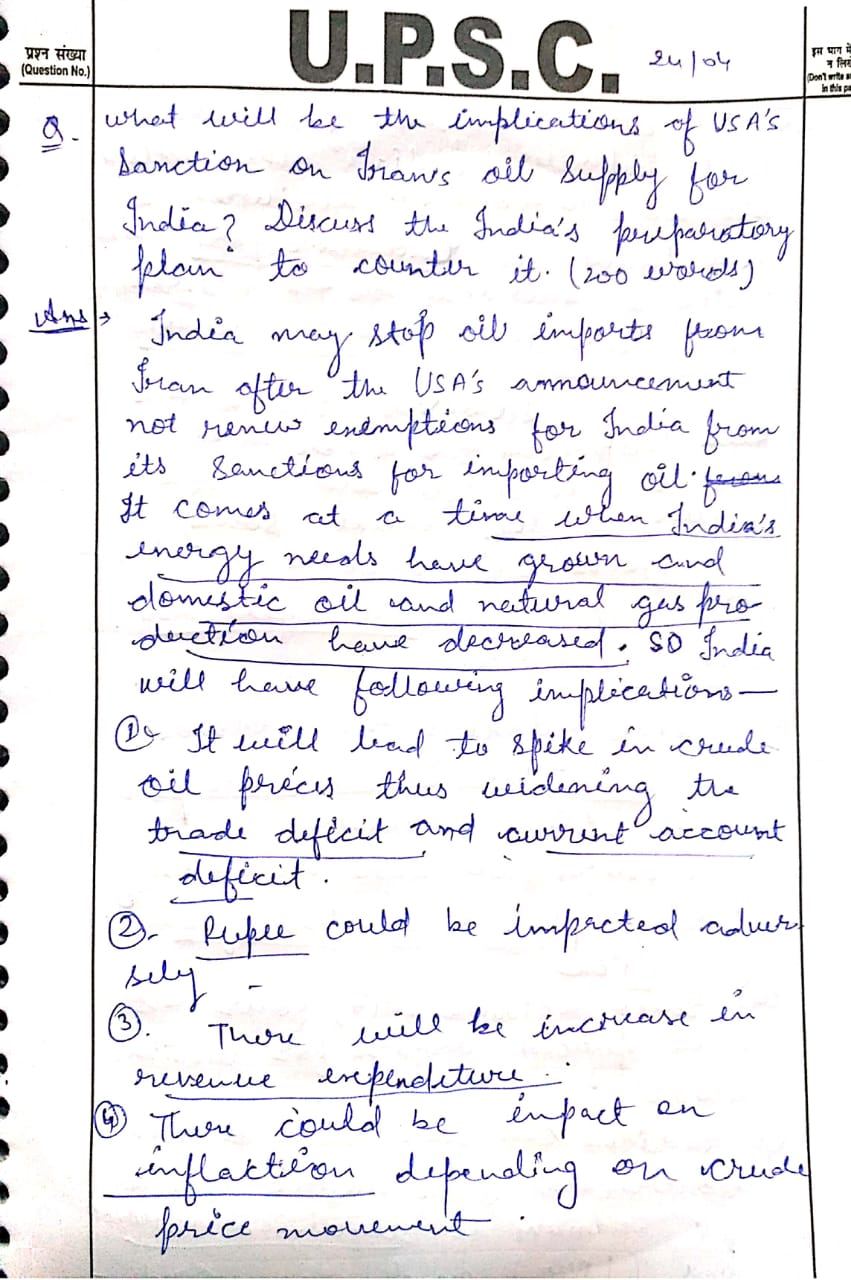 प्रश्न संख्या
(Question No.)
U.P.S.C.
24/04
इस भाग में
न लिखें
(Don't write a
in this pa
Q. What will be the implications of USA's
Sanction on Iran's oil Supply for
India? Discuss the India's preparatory
plan to counter it. (200 words)
Ans → India may stop oil imports from
Iran after the USA's announcement
not renew exemptions for India from
its Sanctions for importing oil. from
It comes at a time when India's
energy needs have grown and
domestic oil and natural gas pro-
duction have decreased. SO India
will have following implications—
① It will lead to spike in crude
oil prices thus widening the
trade deficit and current account
deficit.
②- Rupee could be impacted adver-
sely -
③. There will be increase in
revenue expenditure.
④ There could be impact on
inflaktion depending on crude
price movement.